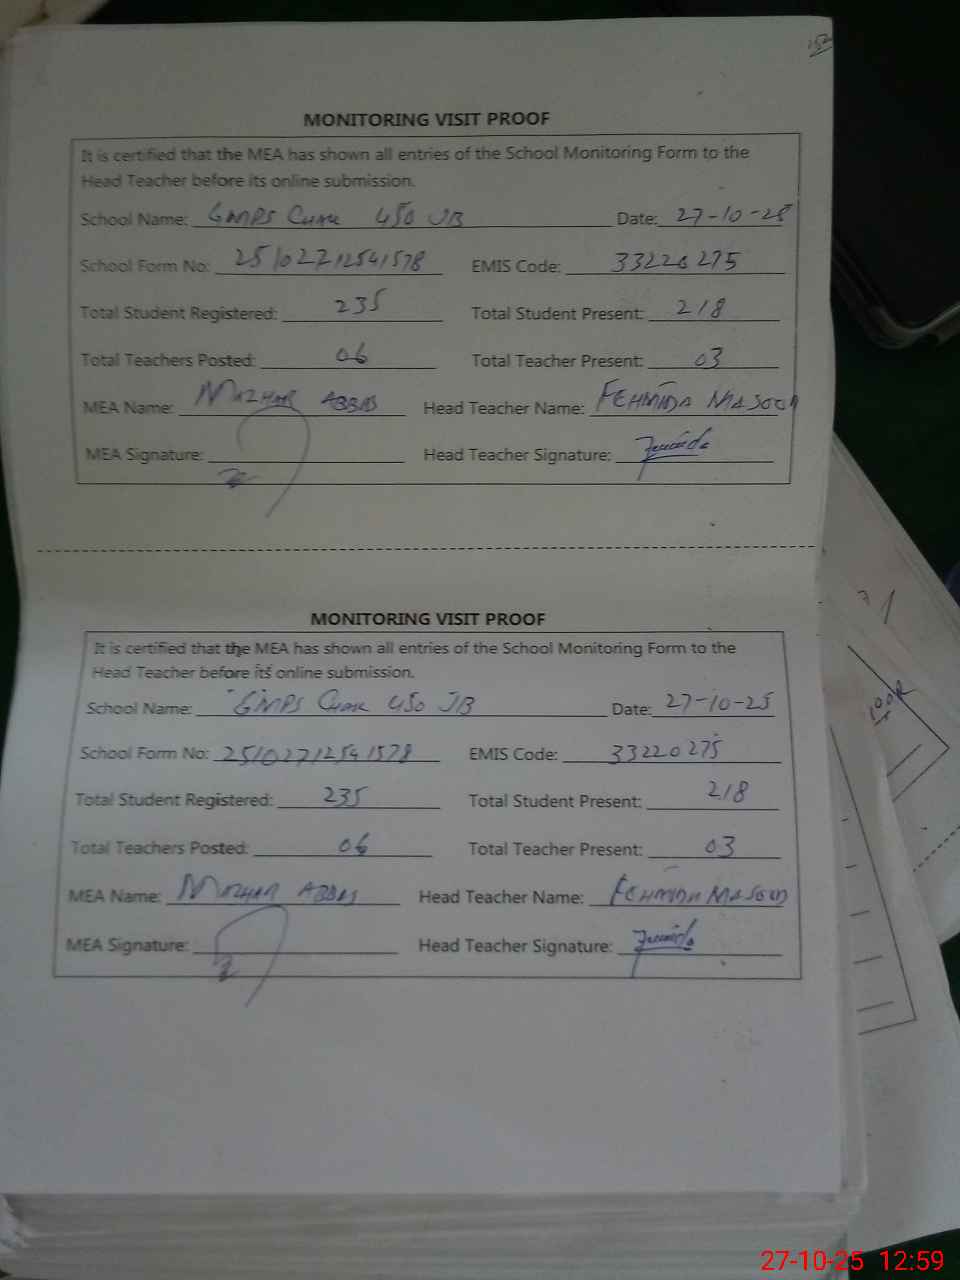 152
MONITORING VISIT PROOF
It is certified that the MEA has shown all entries of the School Monitoring Form to the
Head Teacher before its online submission.
School Name: GMPS Chak 450 JB Date: 27-10-25
School Form No: 25102712541578 EMIS Code: 33220275
Total Student Registered: 235 Total Student Present: 218
Total Teachers Posted: 06 Total Teacher Present: 03
MEA Name: MAZHAR ABBAS Head Teacher Name: FEHMIDA MASOOD
MEA Signature: Head Teacher Signature:
MONITORING VISIT PROOF
It is certified that the MEA has shown all entries of the School Monitoring Form to the
Head Teacher before its online submission.
School Name: GMPS Chak 450 JB Date: 27-10-25
School Form No: 25102712541578 EMIS Code: 33220275
Total Student Registered: 235 Total Student Present: 218
Total Teachers Posted: 06 Total Teacher Present: 03
MEA Name: MAZHAR ABBAS Head Teacher Name: FEHMIDA MASOOD
MEA Signature: Head Teacher Signature:
27-10-25 12:59